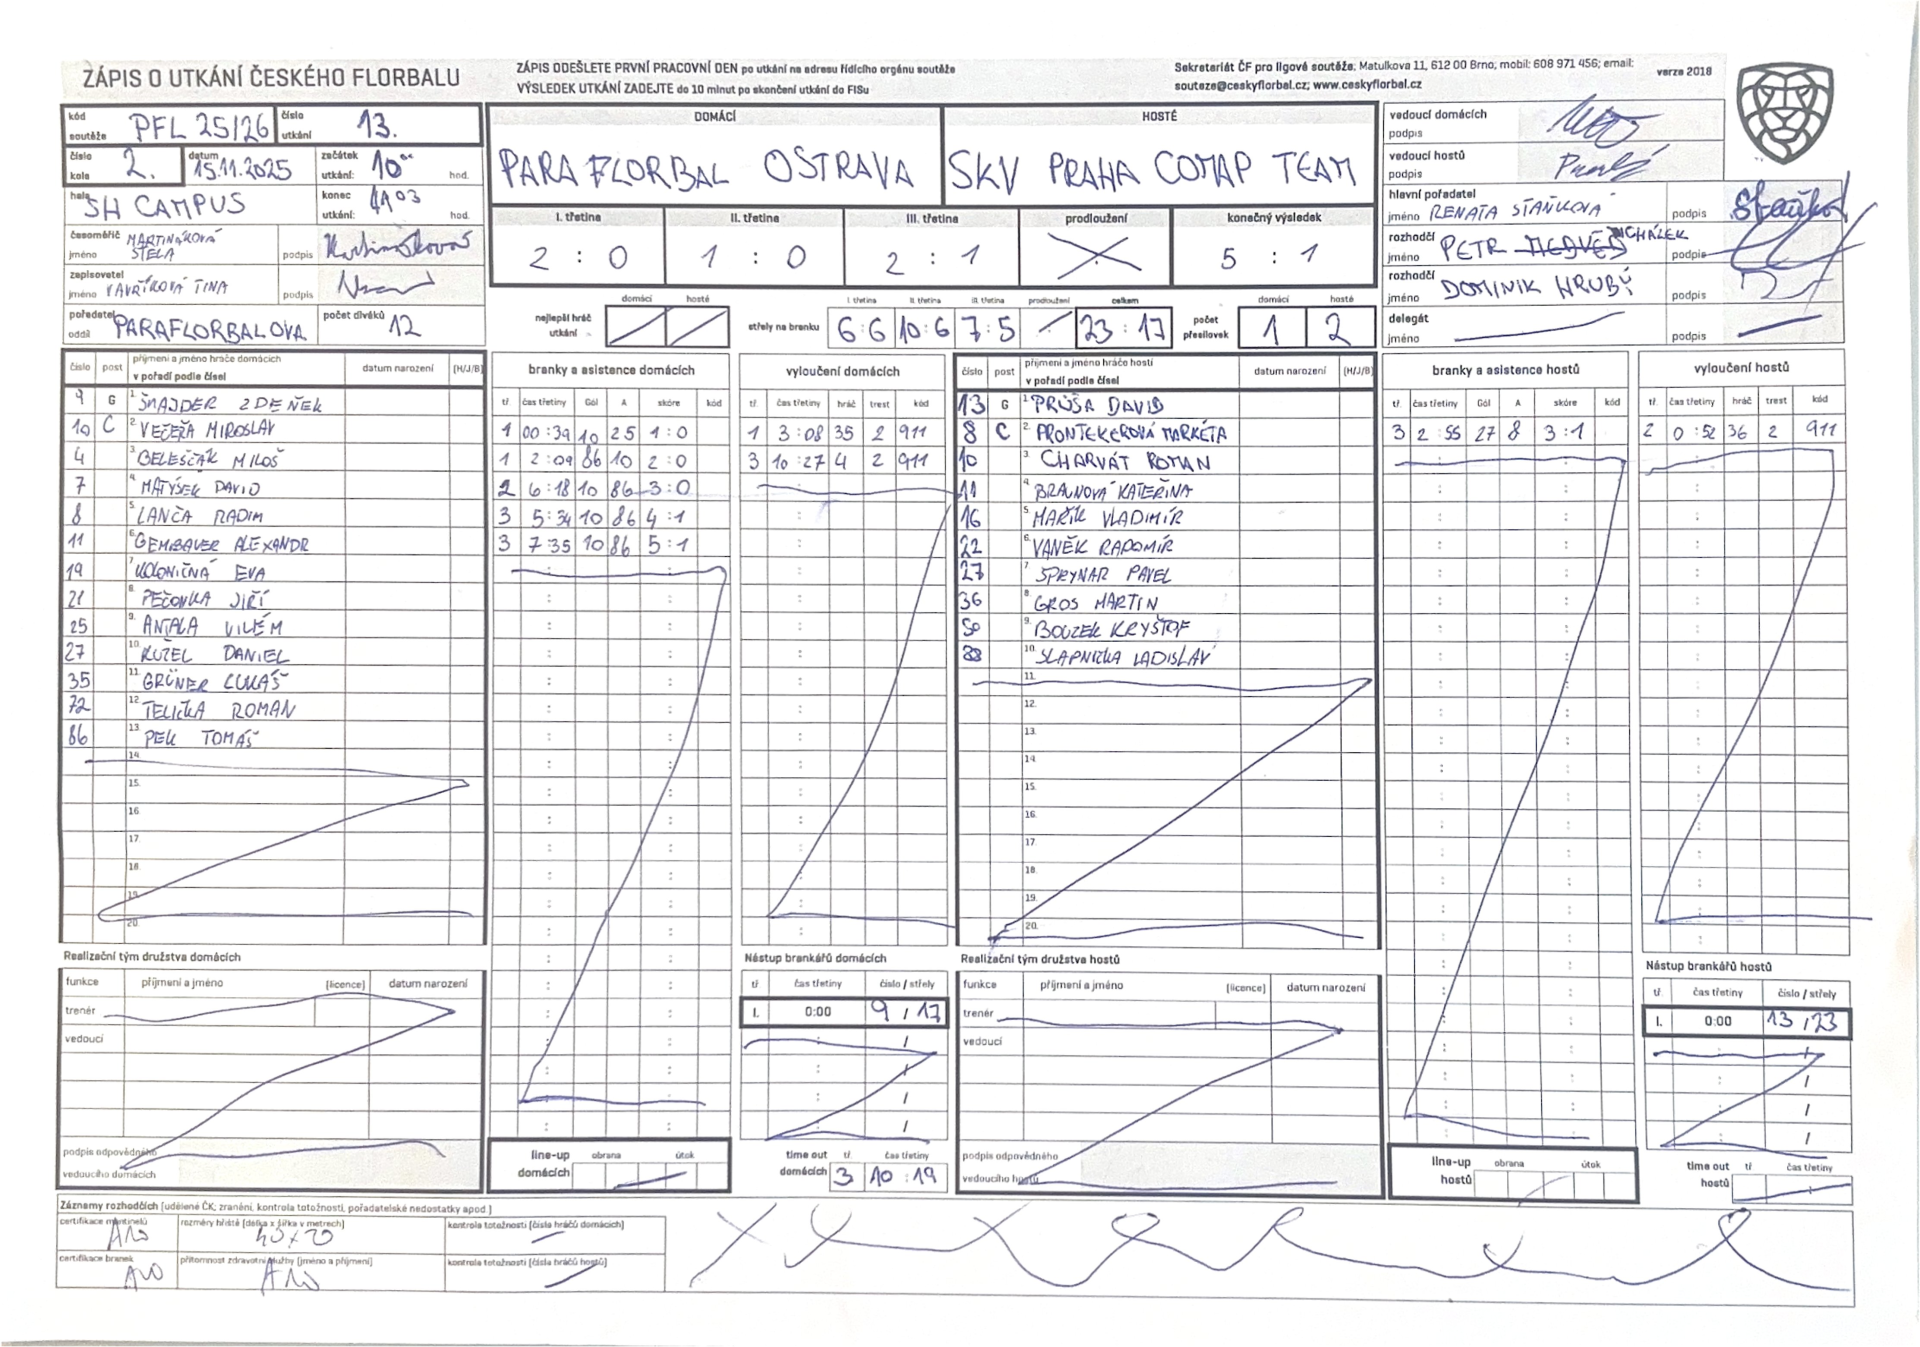 ZÁPIS O UTKÁNÍ ČESKÉHO FLORBALU
ZÁPIS ODEŠLETE PRVNÍ PRACOVNÍ DEN po utkání na adresu řídícího orgánu soutěže
VÝSLEDEK UTKÁNÍ ZADEJTE do 10 minut po skončení utkání do FISu
Sekretariát ČF pro ligové soutěže: Matulkova 11, 612 00 Brno; mobil: 608 971 456; email:
souteze@ceskyflorbal.cz; www.ceskyflorbal.cz
verze 2018
kód soutěže PFL 25/26 číslo utkání 13.
číslo kola 2. datum 15.11.2025 začátek utkání: 10 00 hod.
hala SH CAMPUS konec utkání: 1103 hod.
časoměřič jméno MARTINÁKOVÁ STELA podpis
zapisovatel jméno VAVŘÍKOVÁ TINA podpis
pořadatel oddíl PARAFLORBAL OVA počet diváků 12
DOMÁCÍ HOSTÉ
PARA FLORBAL OSTRAVA SKV PRAHA COMAP TEAM
I. třetina II. třetina III. třetina prodloužení konečný výsledek
2 : 0 1 : 0 2 : 1 5 : 1
nejlepší hráč utkání domácí hosté
střely na branku I. třetina II. třetina III. třetina prodloužení celkem
6:6 10:6 7:5 23:17
počet přesilovek domácí hosté
1 2
vedoucí domácích podpis
vedoucí hostů podpis
hlavní pořadatel jméno RENATA STAŇKOVÁ podpis
rozhodčí jméno PETR MICHÁLEK podpis
rozhodčí jméno DOMINIK HRUBÝ podpis
delegát jméno podpis
číslo post příjmení a jméno hráče domácích v pořadí podle čísel datum narození (H/J/B)
9 G 1. ŠNAJDER ZDENĚK
10 C 2. VEČEŘA MIROSLAV
4 3. BELEŠČÁK MILOŠ
7 4. MATÝSEK DAVID
8 5. LANČA RADIM
11 6. GEMBAUER ALEXANDR
19 7. KOLONIČNÁ EVA
21 8. PEČONKA JIŘÍ
25 9. ANTALA VILÉM
27 10. KUŽEL DANIEL
35 11. GRÜNER LUKÁŠ
72 12. TELIČKA ROMAN
86 13. PEK TOMÁŠ
14.
15.
16.
17.
18.
19.
20.
branky a asistence domácích
tř. čas třetiny Gól A skóre kód
1 00:39 10 25 1:0
1 2:09 86 10 2:0
2 6:18 10 86 3:0
3 5:34 10 86 4:1
3 7:35 10 86 5:1
vyloučení domácích
tř. čas třetiny hráč trest kód
1 3:08 35 2 911
3 10:27 4 2 911
číslo post příjmení a jméno hráčů hostí v pořadí podle čísel datum narození (H/J/B)
13 G 1. PRŮŠA DAVID
8 C 2. PRONTEKEROVÁ MARKÉTA
10 3. CHARVÁT ROMAN
11 4. BRAUNOVÁ KATEŘINA
16 5. MAŘÍK VLADIMÍR
22 6. VANĚK RADOMÍR
27 7. SPRYNAR PAVEL
36 8. GROS MARTIN
50 9. BOUZEK KRYŠTOF
88 10. SLAPNIČKA LADISLAV
11.
12.
13.
14.
15.
16.
17.
18.
19.
20.
branky a asistence hostů
tř. čas třetiny Gól A skóre kód
3 2:55 27 8 3:1
vyloučení hostů
tř. čas třetiny hráč trest kód
2 0:52 36 2 911
Realizační tým družstva domácích
funkce příjmení a jméno (licence) datum narození
trenér
vedoucí
podpis odpovědného vedoucího domácích
line-up domácích obrana útok
Nástup brankářů domácích
tř čas třetiny číslo / střely
I. 0:00 9 / 17
time out domácích tř. čas třetiny
3 10:19
Realizační tým družstva hostů
funkce příjmení a jméno (licence) datum narození
trenér
vedoucí
podpis odpovědného vedoucího hostů
line-up hostů obrana útok
Nástup brankářů hostů
tř. čas třetiny číslo / střely
I. 0:00 13 / 23
time out hostů tř čas třetiny
Záznamy rozhodčích (udělené ČK; zranění, kontrola totožnosti, pořadatelské nedostatky apod.)
certifikace mantinelů ANO rozměry hřiště (délka x šířka v metrech) 40x20 kontrola totožnosti (čísla hráčů domácích)
certifikace branek ANO přítomnost zdravotní služby (jméno a příjmení) ANO kontrola totožnosti (čísla hráčů hostů)